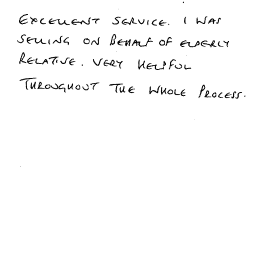 EXCELLENT SERVICE. I WAS
SELLING ON BEHALF OF ELDERLY
RELATIVE. VERY HELPFUL
THROUGHOUT THE WHOLE PROCESS.